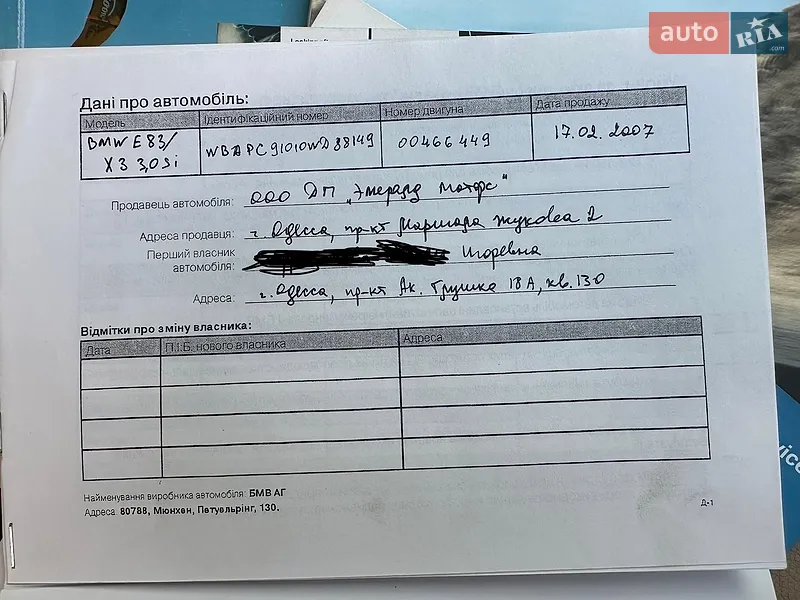 auto RIA.com
Дані про автомобіль:
Модель Ідентифікаційний номер Номер двигуна Дата продажу
BMW E83/ X3 3,0si WBAPC91010WD88149 00466449 17.02.2007
Продавець автомобіля: ООО ДП „Эмералд Моторс“
Адреса продавця: г. Одесса, пр-кт Маршала Жукова 2
Перший власник автомобіля: Игоревна
Адреса: г. Одесса, пр-кт Ак. Глушка 18А, кв. 130
Відмітки про зміну власника:
Дата П.І.Б. нового власника Адреса
Найменування виробника автомобіля: БМВ АГ
Адреса: 80788, Мюнхен, Петуельрінг, 130.
Д-1